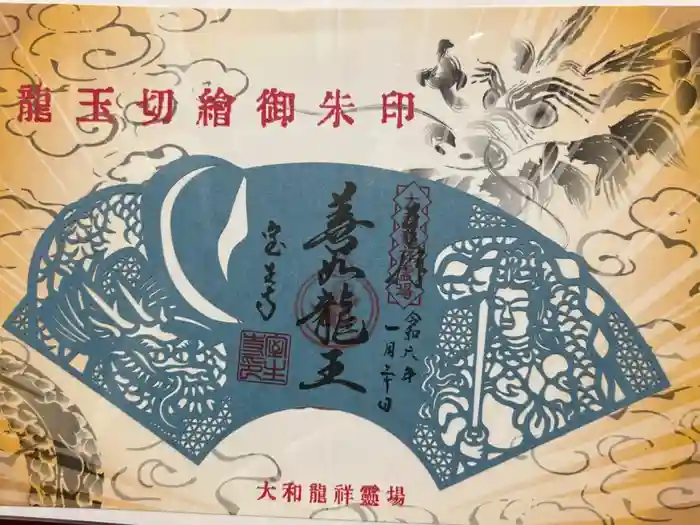 龍玉切繪御朱印
奉拝
令和六年
一月三十日
善如龍王
室生寺
大和龍祥靈場